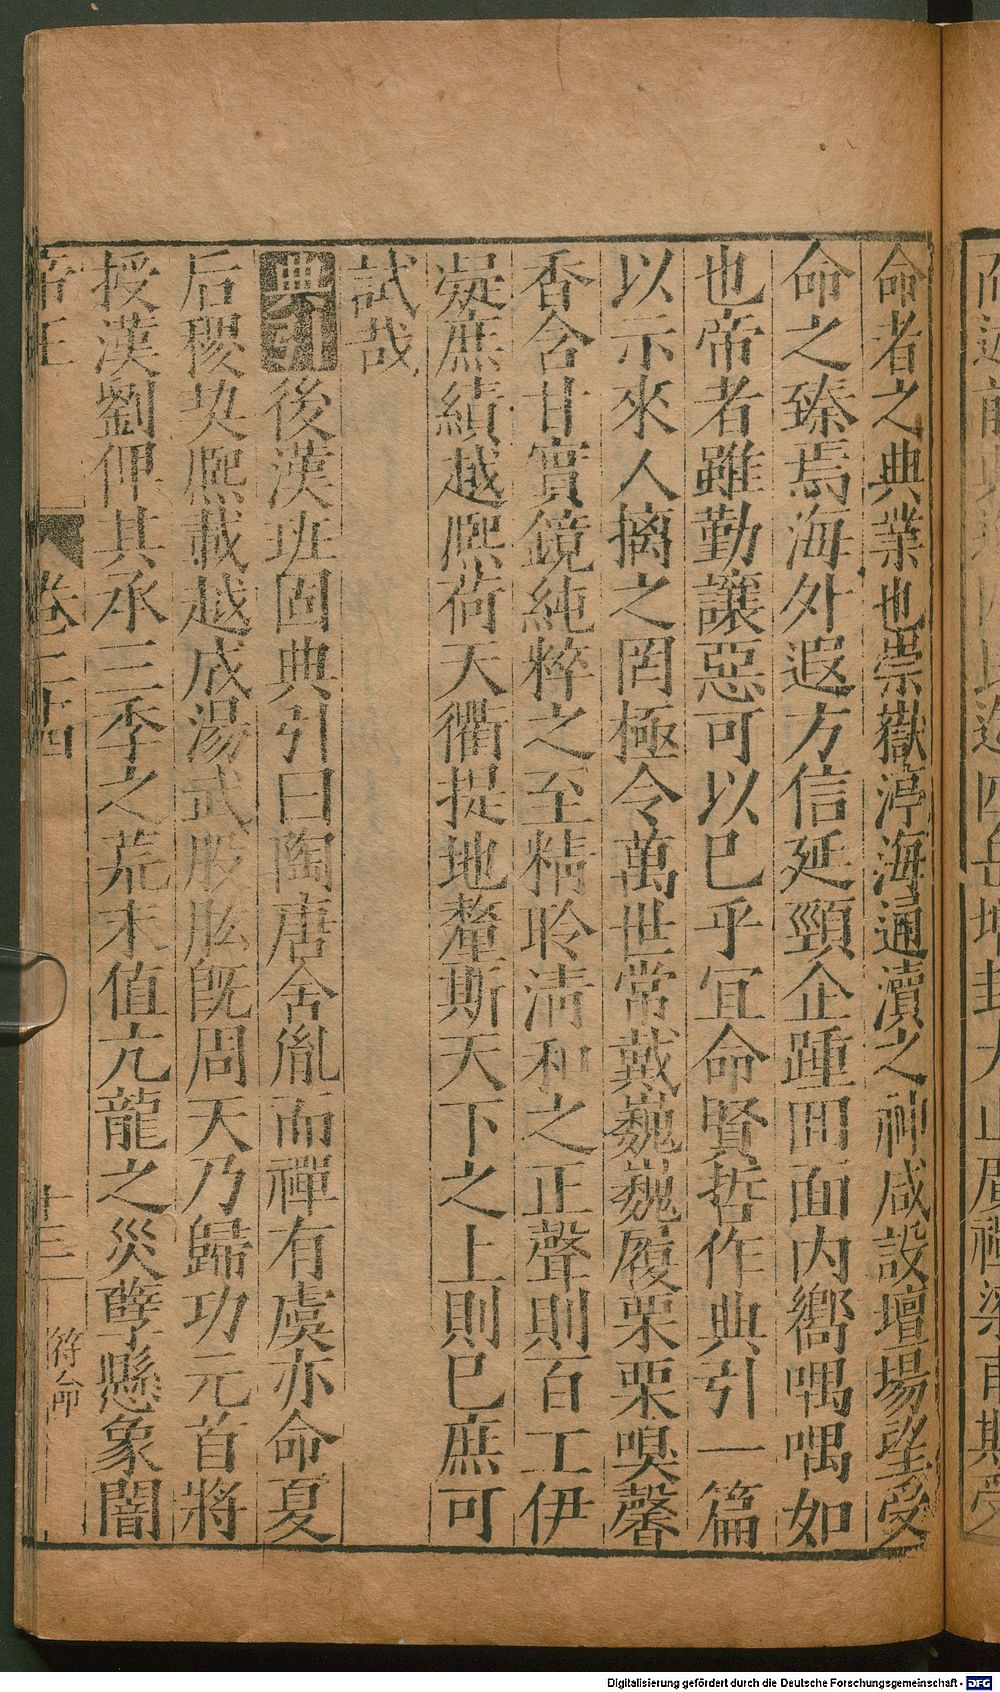 命者之典業也崇嶽渟海通瀆之神咸設壇場望受
命之臻焉海外遐方信延頸企踵回面內嚮喁喁如
也帝者雖勤讓惡可以已乎宜命賢哲作典引一篇
以示來人摛之罔極令萬世常戴巍巍履栗栗嗅馨
香含甘實鏡純粹之至精聆淸和之正聲則百工伊
凝庶績越熈荷天衢提地釐斯天下之上則已庶可
試哉
典引後漢班固典引曰陶唐舍胤而禪有虞亦命夏
后稷契熈載越成湯武股肱旣周天乃歸功元首將
授漢劉俾其承三季之荒末值亢龍之災孽懸象闇
帝王 卷二十四 十三 符命
Digitalisierung gefördert durch die Deutsche Forschungsgemeinschaft - DFG